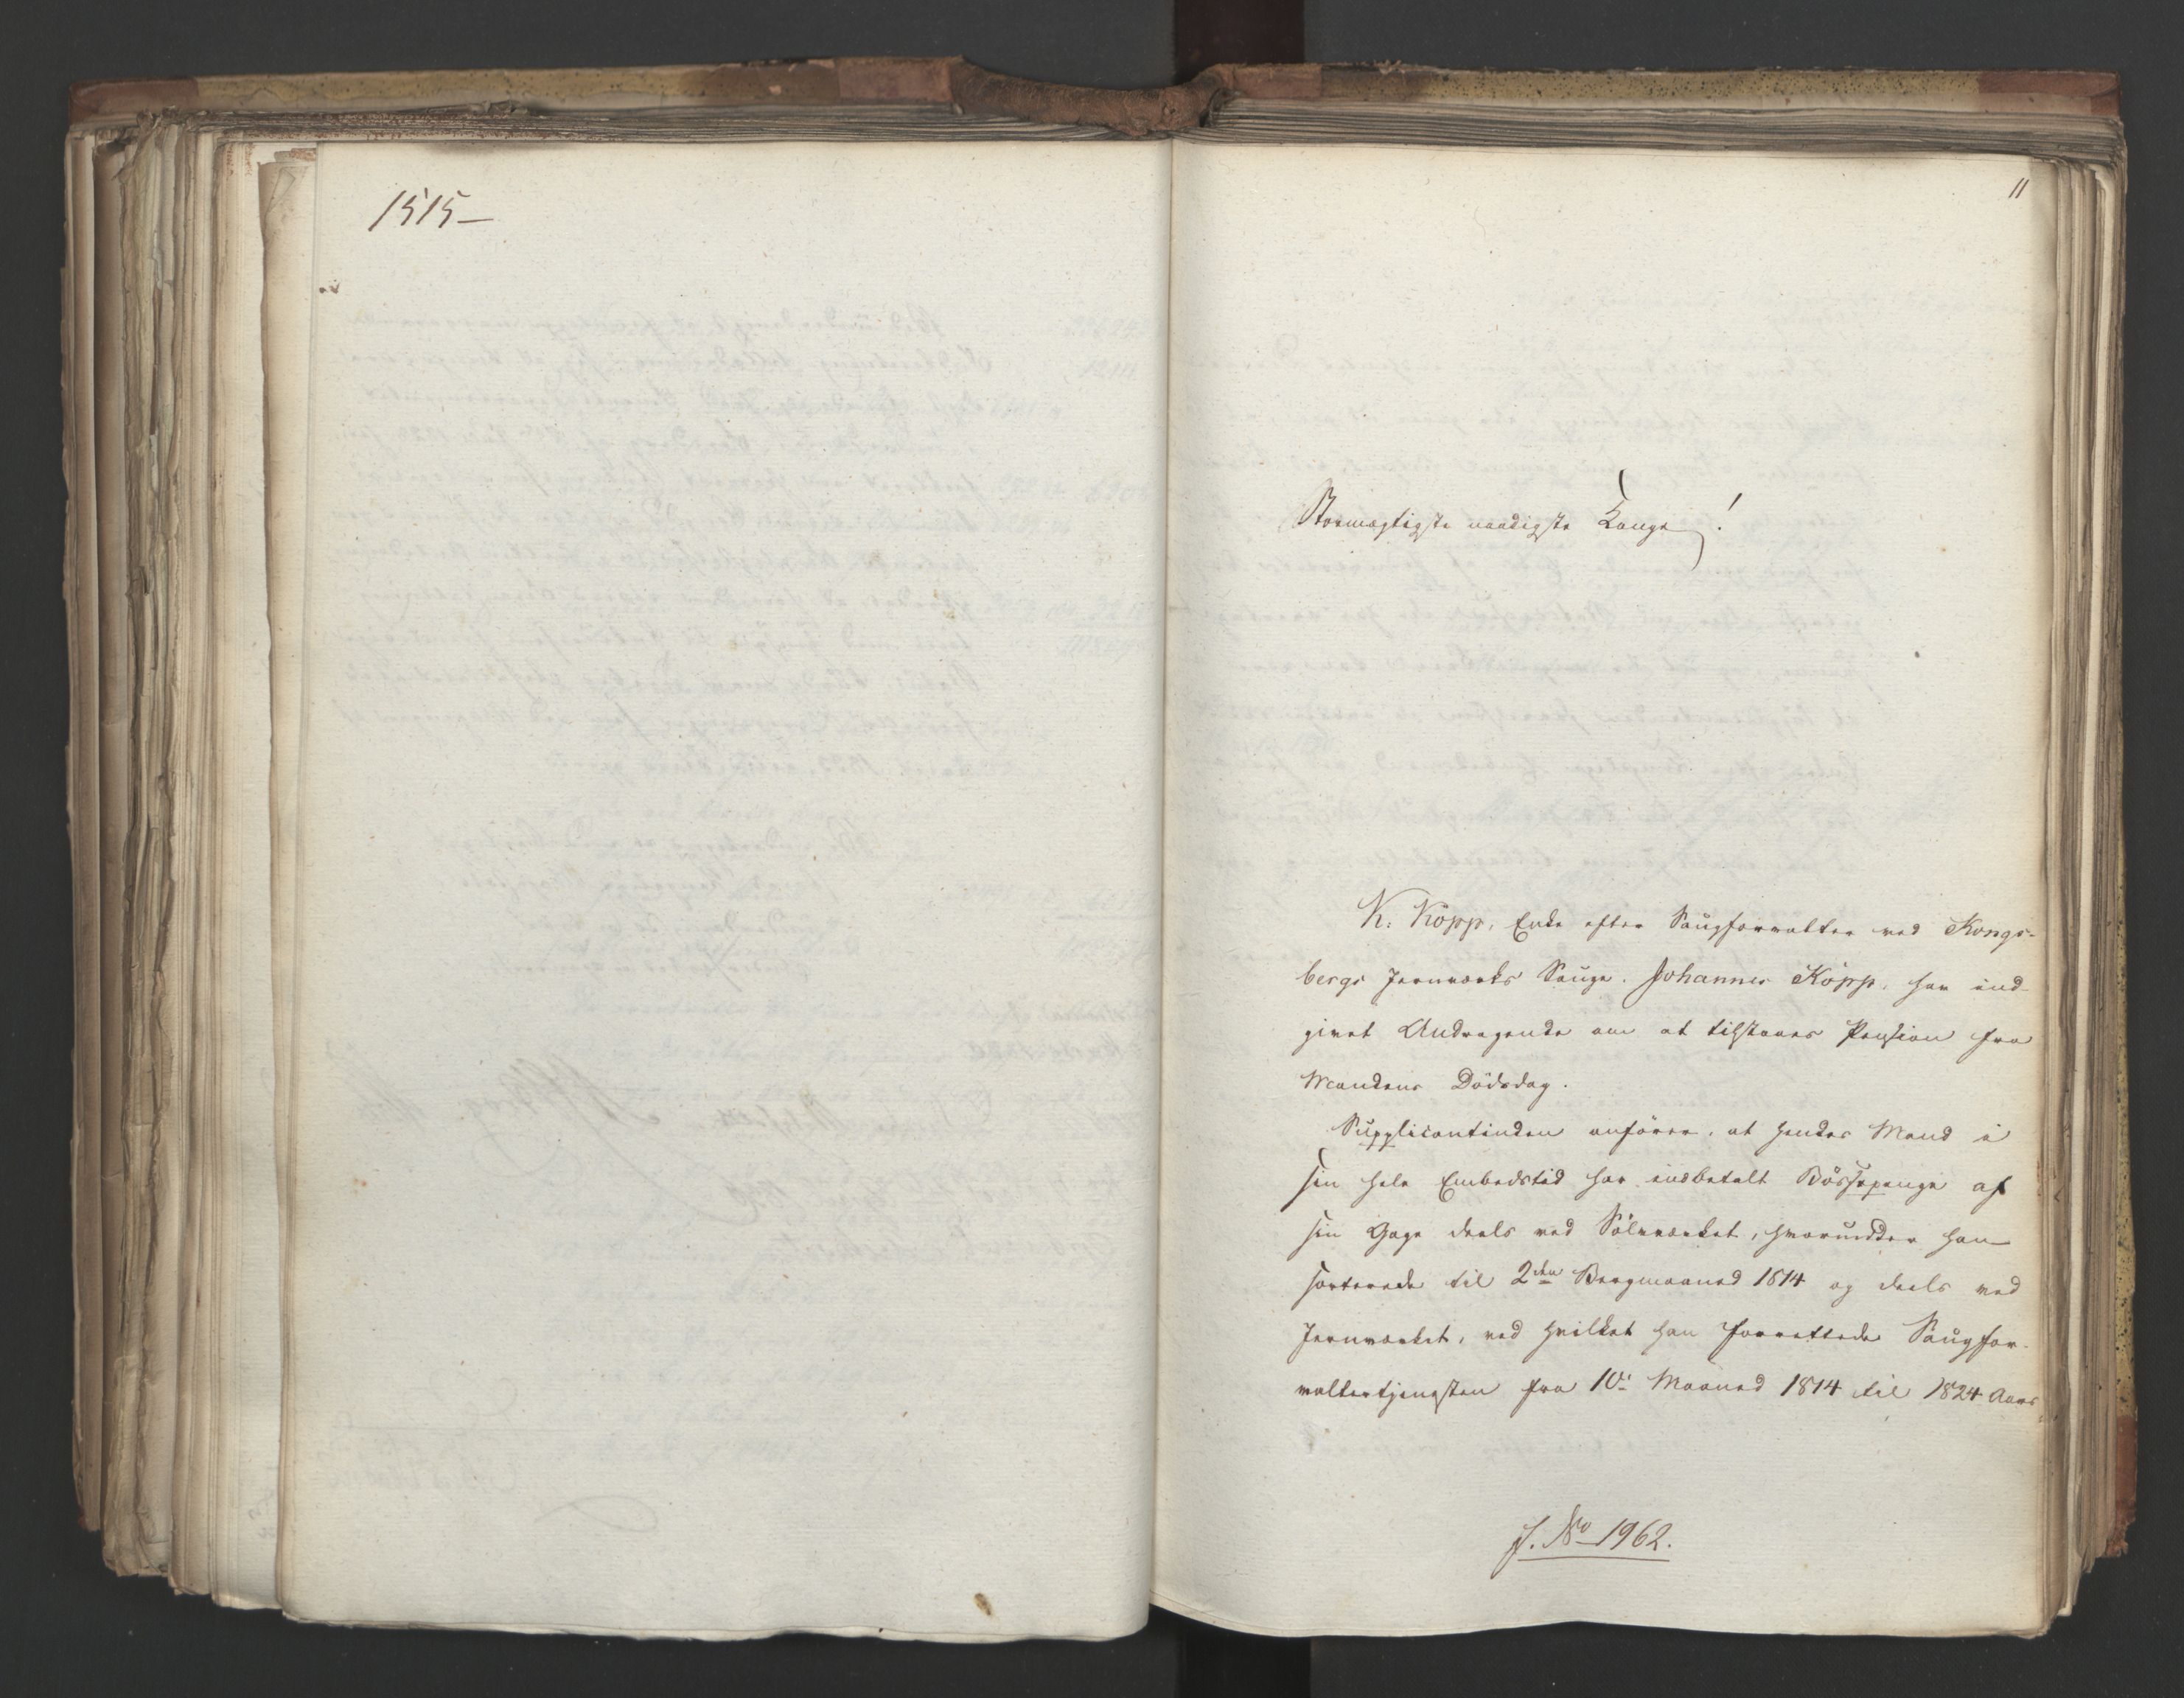 1515-
11
Stormægtigste naadigste Konge!
K. Köpp, Enke efter Saugforvalter ved Kongs-
bergs Jernværks Sauge. Johannes Köpp, har ind-
givet Andragende om at tilstaaes Pension fra
Mandens Dödsdag.
Supplicantinden anförer, at hendes Mand i
sin hele Embedstid har indbetalt Bössepenge af
sin Gage deels ved Sölvværket, hvorunder han
sorterede til 2den Bergmaaned 1814 og deels ved
Jernværket, ved hvilket han forrettede Saugfor-
valtertjenesten fra 10de Maaned 1814 til 1824 Aars
J. No 1962.